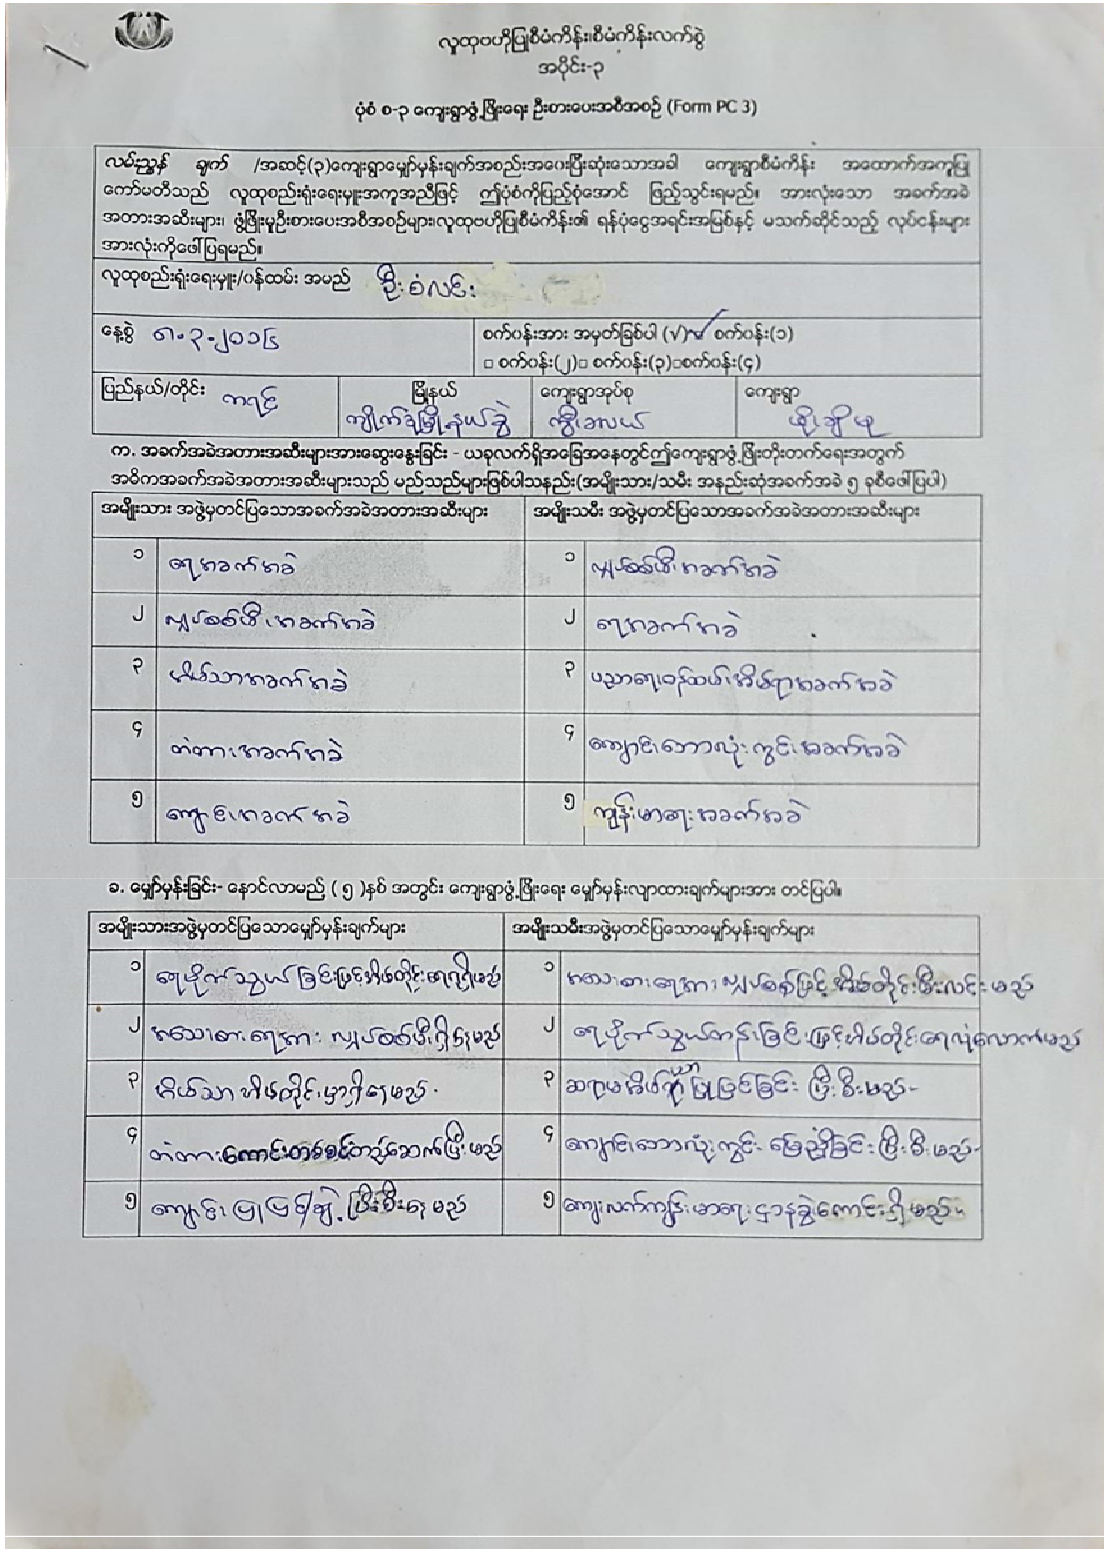 လူထုဗဟိုပြုစီမံကိန်း၊စီမံကိန်းလက်စွဲ
အပိုင်း-၃
ပုံစံ စ-၃ ကျေးရွာဖွံ့ဖြိုးရေး ဦးစားပေးအစီအစဉ် (Form PC 3)
လမ်းညွှန် ချက် /အဆင့်(၃)ကျေးရွာမျှော်မှန်းချက်အစည်းအဝေးပြီးဆုံးသောအခါ ကျေးရွာစီမံကိန်း အထောက်အကူပြု
ကော်မတီသည် လူထုစည်းရုံးရေးမှူးအကူအညီဖြင့် ဤပုံစံကိုပြည့်စုံအောင် ဖြည့်သွင်းရမည်။ အားလုံးသော အခက်အခဲ
အတားအဆီးများ၊ ဖွံ့ဖြိုးမှုဦးစားပေးအစီအစဉ်များ၊လူထုဗဟိုပြုစီမံကိန်း၏ ရန်ပုံငွေအရင်းအမြစ်နှင့် မသက်ဆိုင်သည့် လုပ်ငန်းများ
အားလုံးကိုဖေါ်ပြရမည်။
လူထုစည်းရုံးရေးမှူး/ဝန်ထမ်း အမည် ဦးစံလင်း
နေ့စွဲ ၈-၃-၂၀၁၆ စက်ဝန်းအား အမှတ်ခြစ်ပါ (√) ✓ စက်ဝန်း(၁)
□ စက်ဝန်း(၂)□ စက်ဝန်း(၃)□စက်ဝန်း(၄)
ပြည်နယ်/တိုင်း ကရင် မြို့နယ် ကျေးရွာအုပ်စု ကျေးရွာ
ကျိုက်ဒုံမြို့နယ်ခွဲ
က. အခက်အခဲအတားအဆီးများအားဆွေးနွေးခြင်း - ယခုလက်ရှိအခြေအနေတွင်ဤကျေးရွာဖွံ့ဖြိုးတိုးတက်ရေးအတွက်
အဓိကအခက်အခဲအတားအဆီးများသည် မည်သည်များဖြစ်ပါသနည်း(အမျိုးသား/သမီး အနည်းဆုံးအခက်အခဲ ၅ ခုစီဖေါ်ပြပါ)
အမျိုးသား အဖွဲ့မှတင်ပြသောအခက်အခဲအတားအဆီးများ အမျိုးသမီး အဖွဲ့မှတင်ပြသောအခက်အခဲအတားအဆီးများ
၁ ရေအခက်အခဲ ၁ လျှပ်စစ်မီးအခက်အခဲ
၂ လျှပ်စစ်မီးအခက်အခဲ ၂ ရေအခက်အခဲ
၃ အိမ်သာအခက်အခဲ ၃ ပညာရေးဝန်ထမ်းအိမ်ရာအခက်အခဲ
၄ တံတားအခက်အခဲ ၄ ကျောင်းဘောလုံးကွင်းအခက်အခဲ
၅ ကျောင်းအခက်အခဲ ၅ ကျန်းမာရေးအခက်အခဲ
ခ. မျှော်မှန်းခြင်း- နောင်လာမည် ( ၅ )နှစ် အတွင်း ကျေးရွာဖွံ့ဖြိုးရေး မျှော်မှန်းလျာထားချက်များအား တင်ပြပါ။
အမျိုးသားအဖွဲ့မှတင်ပြသောမျှော်မှန်းချက်များ အမျိုးသမီးအဖွဲ့မှတင်ပြသောမျှော်မှန်းချက်များ
၁ ရေပိုက်သွယ်ခြင်းဖြင့်အိမ်တိုင်းရေရရှိမည် ၁ သောစားရေအား လျှပ်စစ်ဖြင့် အိမ်တိုင်းမီးလင်းမည်
၂ သောစားရေအား လျှပ်စစ်မီးရှိနေမည် ၂ ရေပိုက်သွယ်တန်းခြင်းဖြင့်အိမ်တိုင်းရေလုံလောက်မည်
၃ အိမ်သာအိမ်တိုင်းမှာရှိနေမည်. ၃ ဆရာမအိမ်ရာပြုပြင်ခြင်း ပြီးစီးမည်.
၄ တံတားကောင်းတစ်စင်းတည်ဆောက်ပြီးမည် ၄ ကျောင်းဘောလုံးကွင်း မြေညှိခြင်းပြီးစီးမည်.
၅ ကျောင်းပြုပြင်၍ပြီးစီးနေမည် ၅ ကျေးလက်ကျန်းမာရေးဌာနခွဲကောင်းရှိမည်.